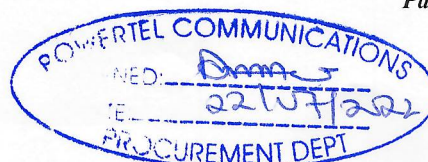 POWERTEL COMMUNICATIONS
NED:
E
22/07/2022
PROCUREMENT DEPT